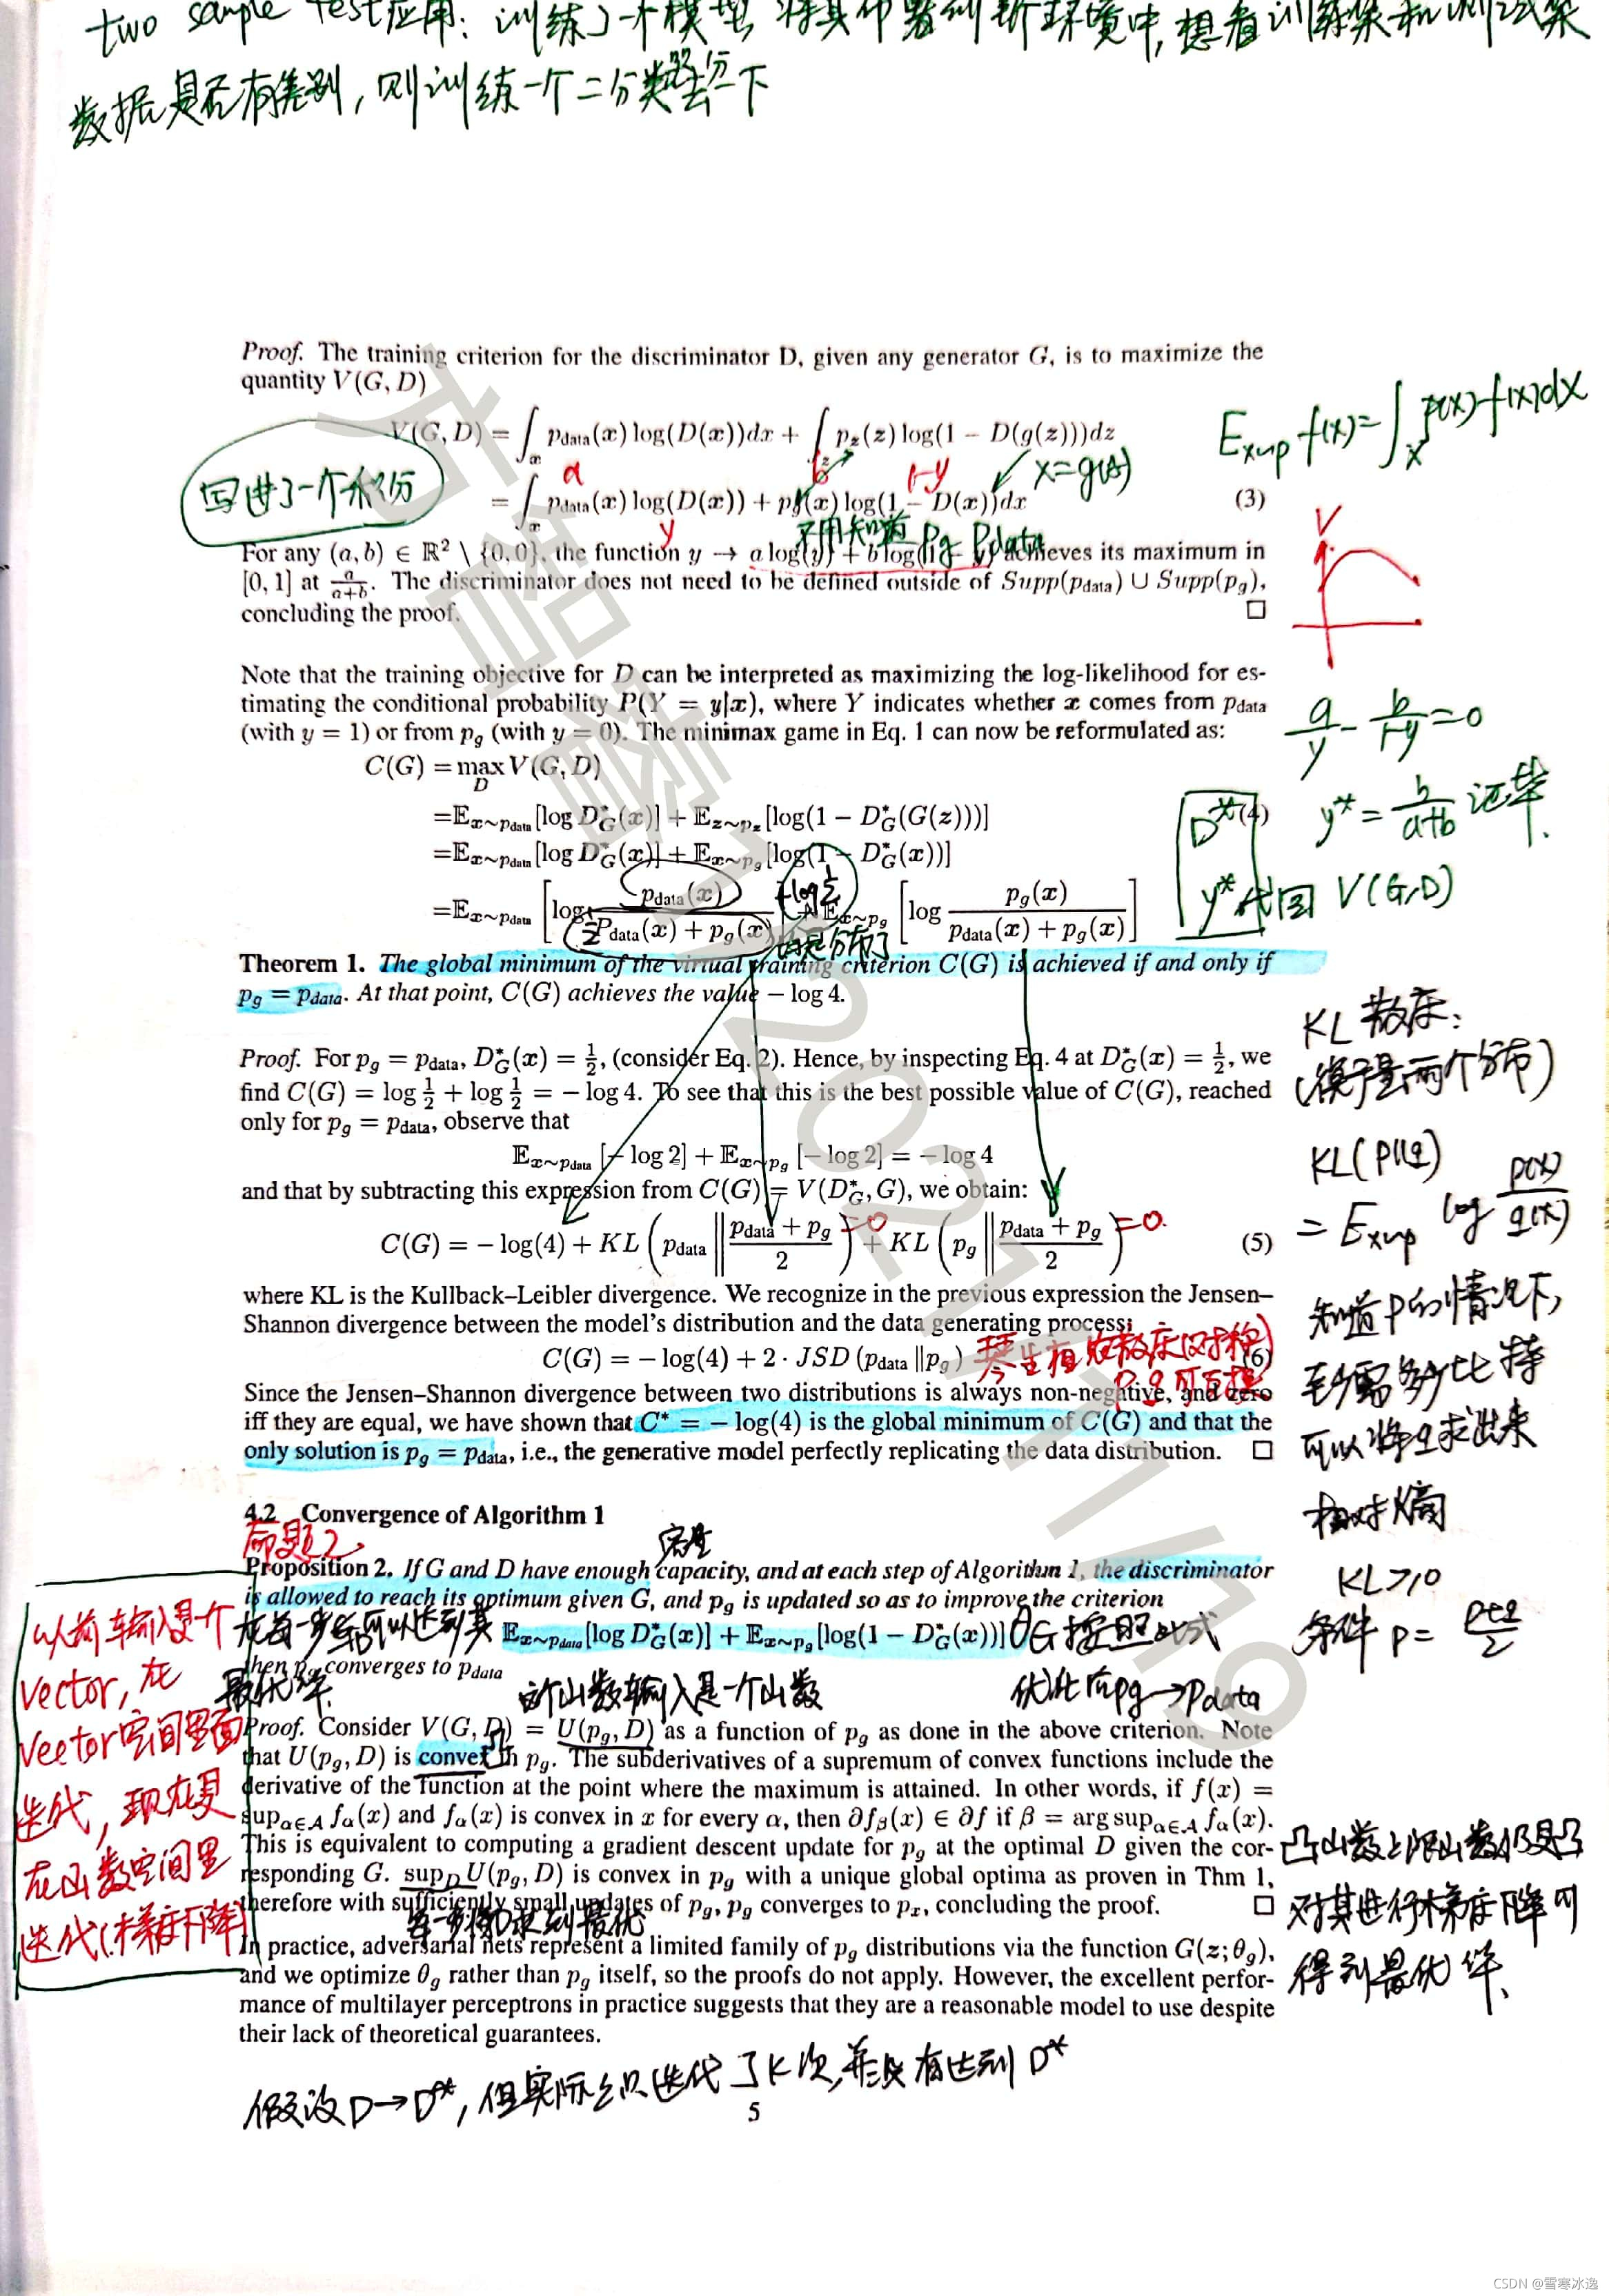 two sample test应用：训练了一个模型，将其布署到新环境中，想看训练集和测试集
数据是否有差别，则训练一个二分类器去分一下
Proof. The training criterion for the discriminator D, given any generator G, is to maximize the
quantity V(G, D)
V(G, D) = ∫_x p_data(x) log(D(x))dx + ∫_z p_z(z) log(1 − D(g(z)))dz
E_{x~p} f(x) = ∫_x p(x) f(x)dx
写进了一个积分
a
b
1-y
x=g(z)
= ∫_x p_data(x) log(D(x)) + p_g(x) log(1 − D(x))dx (3)
y
不用知道 Pg Pdata
V
For any (a, b) ∈ ℝ² \ {0, 0}, the function y → a log(y) + b log(1 − y) achieves its maximum in
[0, 1] at a/(a+b). The discriminator does not need to be defined outside of Supp(p_data) ∪ Supp(p_g),
concluding the proof. □
Note that the training objective for D can be interpreted as maximizing the log-likelihood for es-
timating the conditional probability P(Y = y|x), where Y indicates whether x comes from p_data
(with y = 1) or from p_g (with y = 0). The minimax game in Eq. 1 can now be reformulated as:
a/y - b/(1-y) = 0
C(G) = max_D V(G, D)
=𝔼_{x∼p_data}[log D*_G(x)] + 𝔼_{z∼p_z}[log(1 − D*_G(G(z)))]
(4)
D*
y* = b/(a+b) 证毕.
=𝔼_{x∼p_data}[log D*_G(x)] + 𝔼_{x∼p_g}[log(1 − D*_G(x))]
y*代回 V(G,D)
=𝔼_{x∼p_data} [log p_data(x)/(P_data(x) + p_g(x))] + 𝔼_{x∼p_g} [log p_g(x)/(p_data(x) + p_g(x))]
1/2
+log 1/2
Theorem 1. The global minimum of the virtual training criterion C(G) is achieved if and only if
p_g = p_data. At that point, C(G) achieves the value − log 4.
KL散度：
Proof. For p_g = p_data, D*_G(x) = 1/2, (consider Eq. 2). Hence, by inspecting Eq. 4 at D*_G(x) = 1/2, we
find C(G) = log 1/2 + log 1/2 = − log 4. To see that this is the best possible value of C(G), reached
only for p_g = p_data, observe that
(衡量两个分布)
𝔼_{x∼p_data} [− log 2] + 𝔼_{x∼p_g} [− log 2] = − log 4
KL(p||q)
and that by subtracting this expression from C(G) = V(D*_G, G), we obtain:
= E_{x~p} log p(x)/q(x)
C(G) = − log(4) + KL (p_data ‖ (p_data + p_g)/2) + KL (p_g ‖ (p_data + p_g)/2) (5)
=0
=0.
where KL is the Kullback–Leibler divergence. We recognize in the previous expression the Jensen–
Shannon divergence between the model's distribution and the data generating process:
知道P的情况下，
C(G) = − log(4) + 2 · JSD (p_data ‖p_g) (6)
散度(对称)
p q 可互换
至少需多少比特
Since the Jensen–Shannon divergence between two distributions is always non-negative, and zero
iff they are equal, we have shown that C* = − log(4) is the global minimum of C(G) and that the
only solution is p_g = p_data, i.e., the generative model perfectly replicating the data distribution. □
可以将q求出来
相对熵
4.2 Convergence of Algorithm 1
命题2
容量
Proposition 2. If G and D have enough capacity, and at each step of Algorithm 1, the discriminator
is allowed to reach its optimum given G, and p_g is updated so as to improve the criterion
KL≥0
𝔼_{x∼p_data}[log D*_G(x)] + 𝔼_{x∼p_g}[log(1 − D*_G(x))]
G按照此式
条件 p = (p+q)/2
then p_g converges to p_data
在每一步后可以达到其
最优解
这个函数输入是一个函数
优化后pg→Pdata
以前输入是个
vector，在
vector空间里面
迭代，现在是
在函数空间里
迭代(梯度下降)
Proof. Consider V(G, D) = U(p_g, D) as a function of p_g as done in the above criterion. Note
that U(p_g, D) is convex in p_g. The subderivatives of a supremum of convex functions include the
凸
derivative of the function at the point where the maximum is attained. In other words, if f(x) =
sup_{α∈A} f_α(x) and f_α(x) is convex in x for every α, then ∂f_β(x) ∈ ∂f if β = arg sup_{α∈A} f_α(x).
This is equivalent to computing a gradient descent update for p_g at the optimal D given the cor-
responding G. sup_D U(p_g, D) is convex in p_g with a unique global optima as proven in Thm 1,
therefore with sufficiently small updates of p_g, p_g converges to p_x, concluding the proof. □
凸函数上限函数仍是凸
对其进行梯度下降可
得到最优解、
每一步将D求到最优
In practice, adversarial nets represent a limited family of p_g distributions via the function G(z; θ_g),
and we optimize θ_g rather than p_g itself, so the proofs do not apply. However, the excellent perfor-
mance of multilayer perceptrons in practice suggests that they are a reasonable model to use despite
their lack of theoretical guarantees.
假设D→D*，但实际上只迭代了K次，并没有达到D*
5
2021/11/19
CSDN @雪寒冰逸